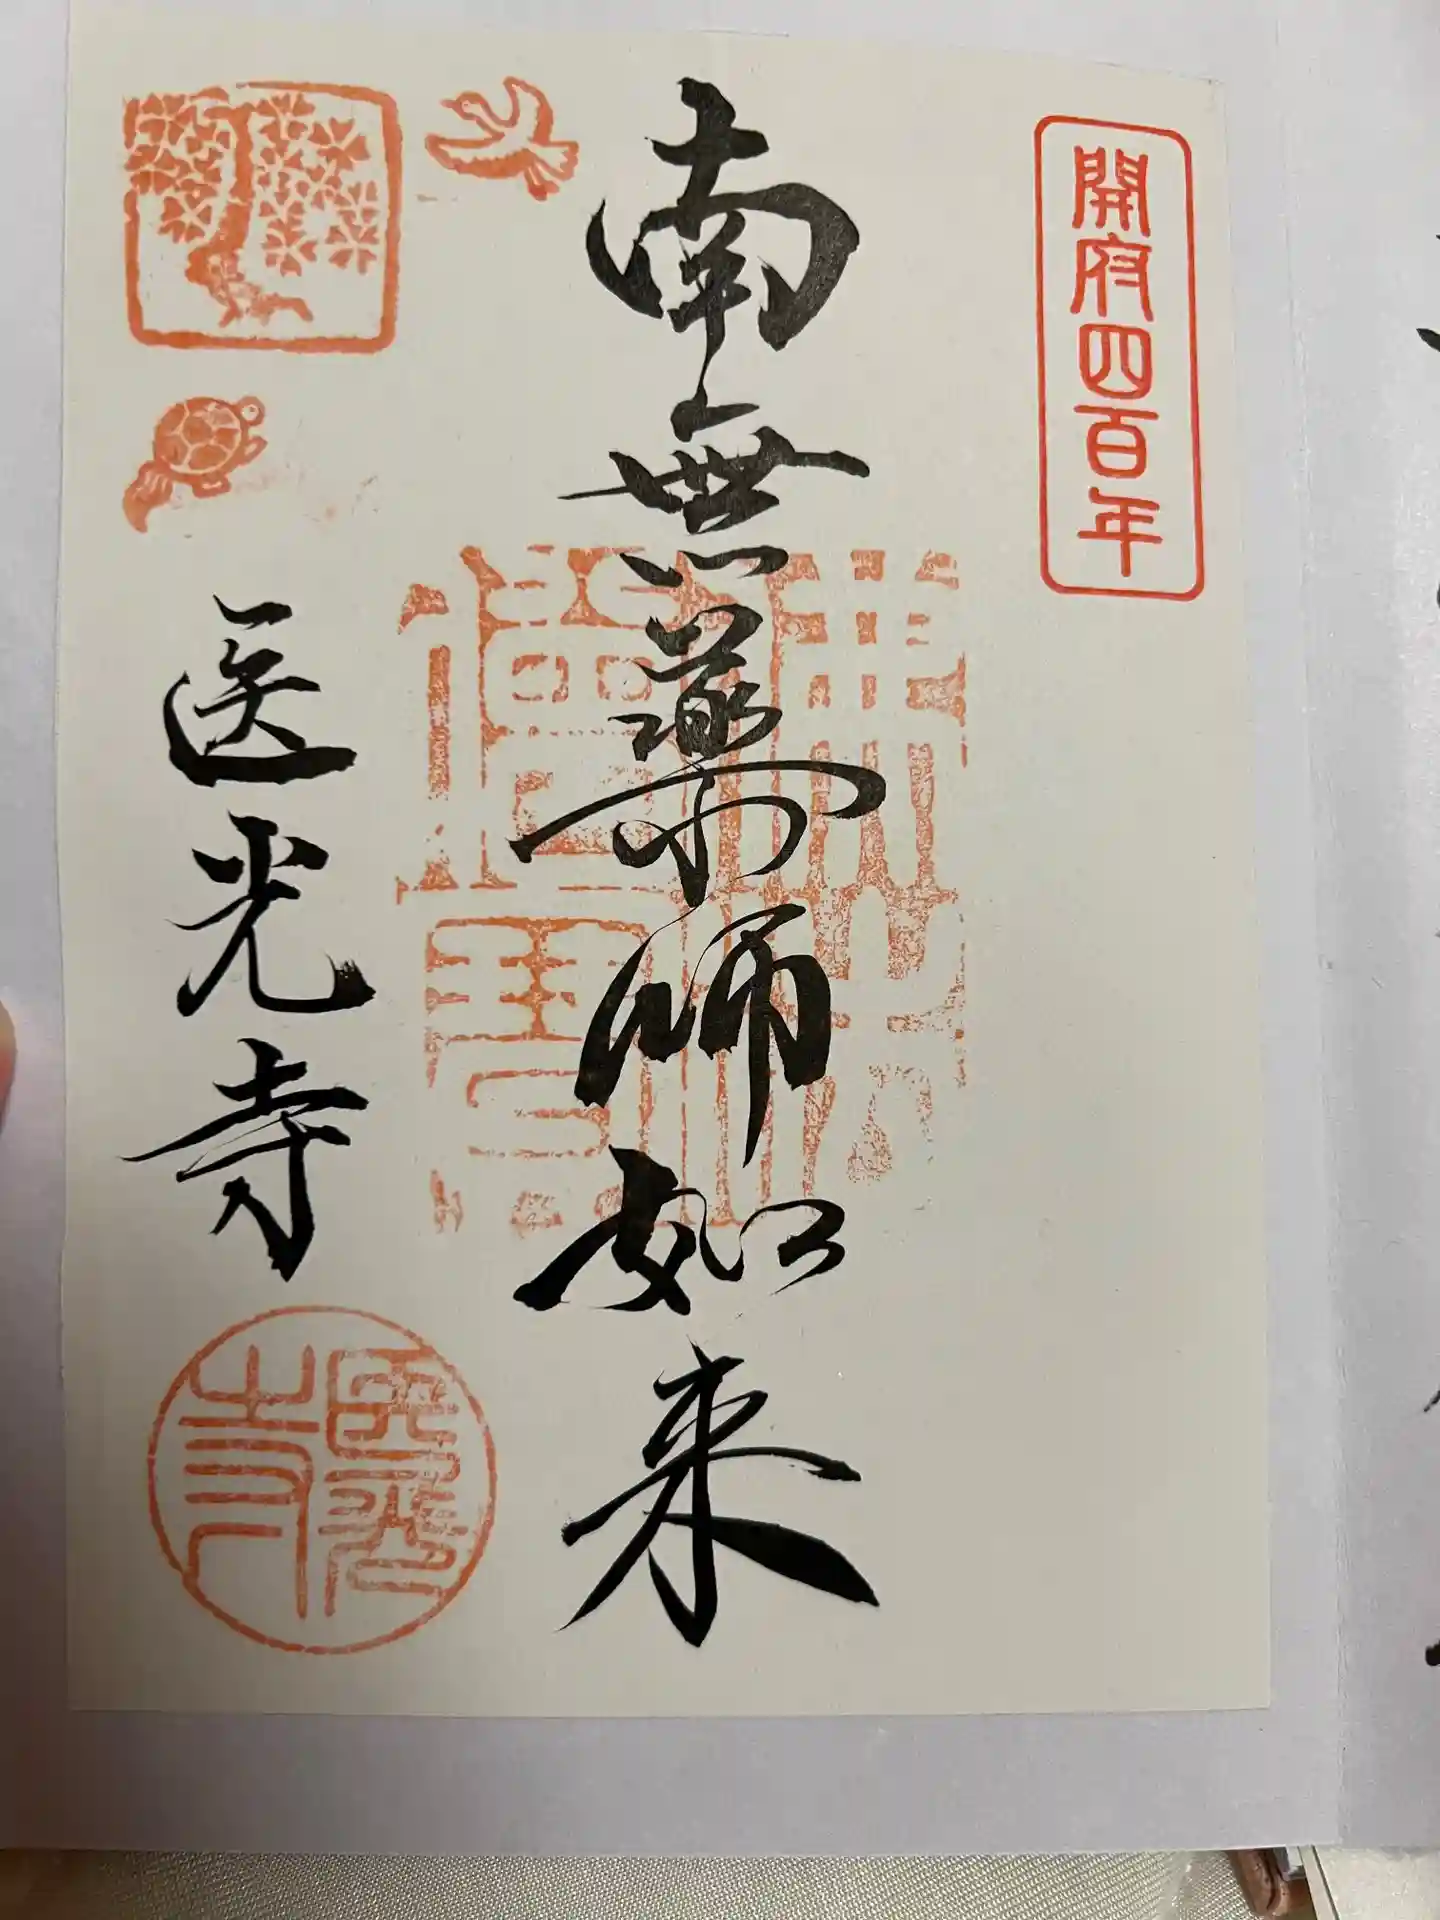 開府四百年
南無薬師如来
医光寺
醫光寺